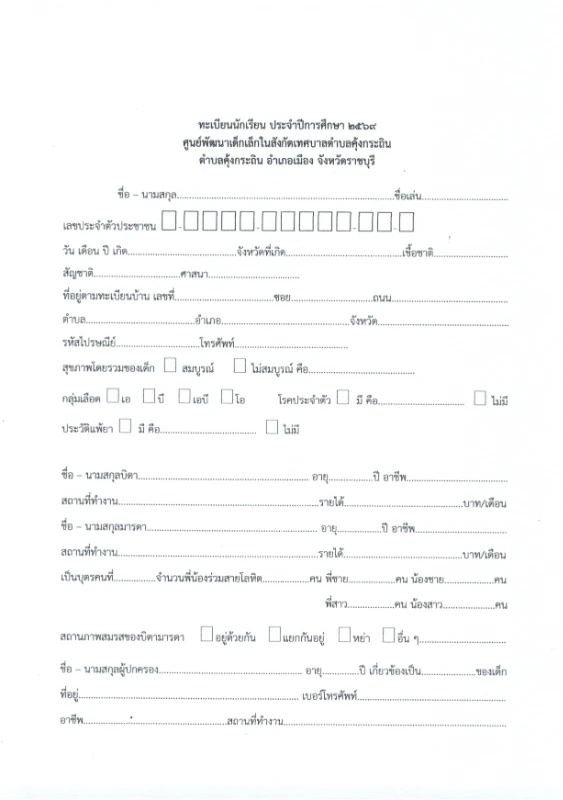 ทะเบียนนักเรียน ประจำปีการศึกษา ๒๕๖๙
ศูนย์พัฒนาเด็กเล็กในสังกัดเทศบาลตำบลคุ้งกระถิน
ตำบลคุ้งกระถิน อำเภอเมือง จังหวัดราชบุรี
ชื่อ – นามสกุล..........................................................................ชื่อเล่น............................
เลขประจำตัวประชาชน ☐-☐☐☐☐-☐☐☐☐☐-☐☐-☐
วัน เดือน ปี เกิด....................................จังหวัดที่เกิด.......................................เชื้อชาติ.........................
สัญชาติ.............................ศาสนา...............................
ที่อยู่ตามทะเบียนบ้าน เลขที่..................................ซอย...........................ถนน.......................................
ตำบล.....................................อำเภอ...........................................จังหวัด............................................
รหัสไปรษณีย์............................โทรศัพท์......................................
สุขภาพโดยรวมของเด็ก ☐ สมบูรณ์ ☐ ไม่สมบูรณ์ คือ...................................
กลุ่มเลือด ☐ เอ ☐ บี ☐ เอบี ☐ โอ โรคประจำตัว ☐ มี คือ............................. ☐ ไม่มี
ประวัติแพ้ยา ☐ มี คือ................................ ☐ ไม่มี
ชื่อ – นามสกุลบิดา......................................................... อายุ..............ปี อาชีพ..................................
สถานที่ทำงาน...................................................................รายได้........................................บาท/เดือน
ชื่อ – นามสกุลมารดา......................................................... อายุ..............ปี อาชีพ...............................
สถานที่ทำงาน...................................................................รายได้........................................บาท/เดือน
เป็นบุตรคนที่..............จำนวนพี่น้องร่วมสายโลหิต................คน พี่ชาย................คน น้องชาย.................คน
พี่สาว................คน น้องสาว.................คน
สถานภาพสมรสของบิดามารดา ☐ อยู่ด้วยกัน ☐ แยกกันอยู่ ☐ หย่า ☐ อื่น ๆ.............................
ชื่อ – นามสกุลผู้ปกครอง............................................... อายุ............ปี เกี่ยวข้องเป็น..................ของเด็ก
ที่อยู่.......................................................................... เบอร์โทรศัพท์..................................................
อาชีพ................................................สถานที่ทำงาน...........................................................................